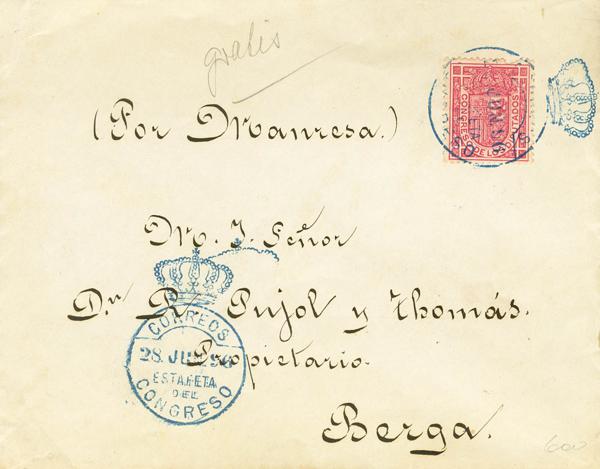 gratis
(Por Manresa.)
CONGRESO DE LOS DIPUTADOS
M. I. Señor
Dn R Pujol y Thomás.
CORREOS
28 JUN 96
ESTAFETA
DEL
CONGRESO
Propietario.
Berga.